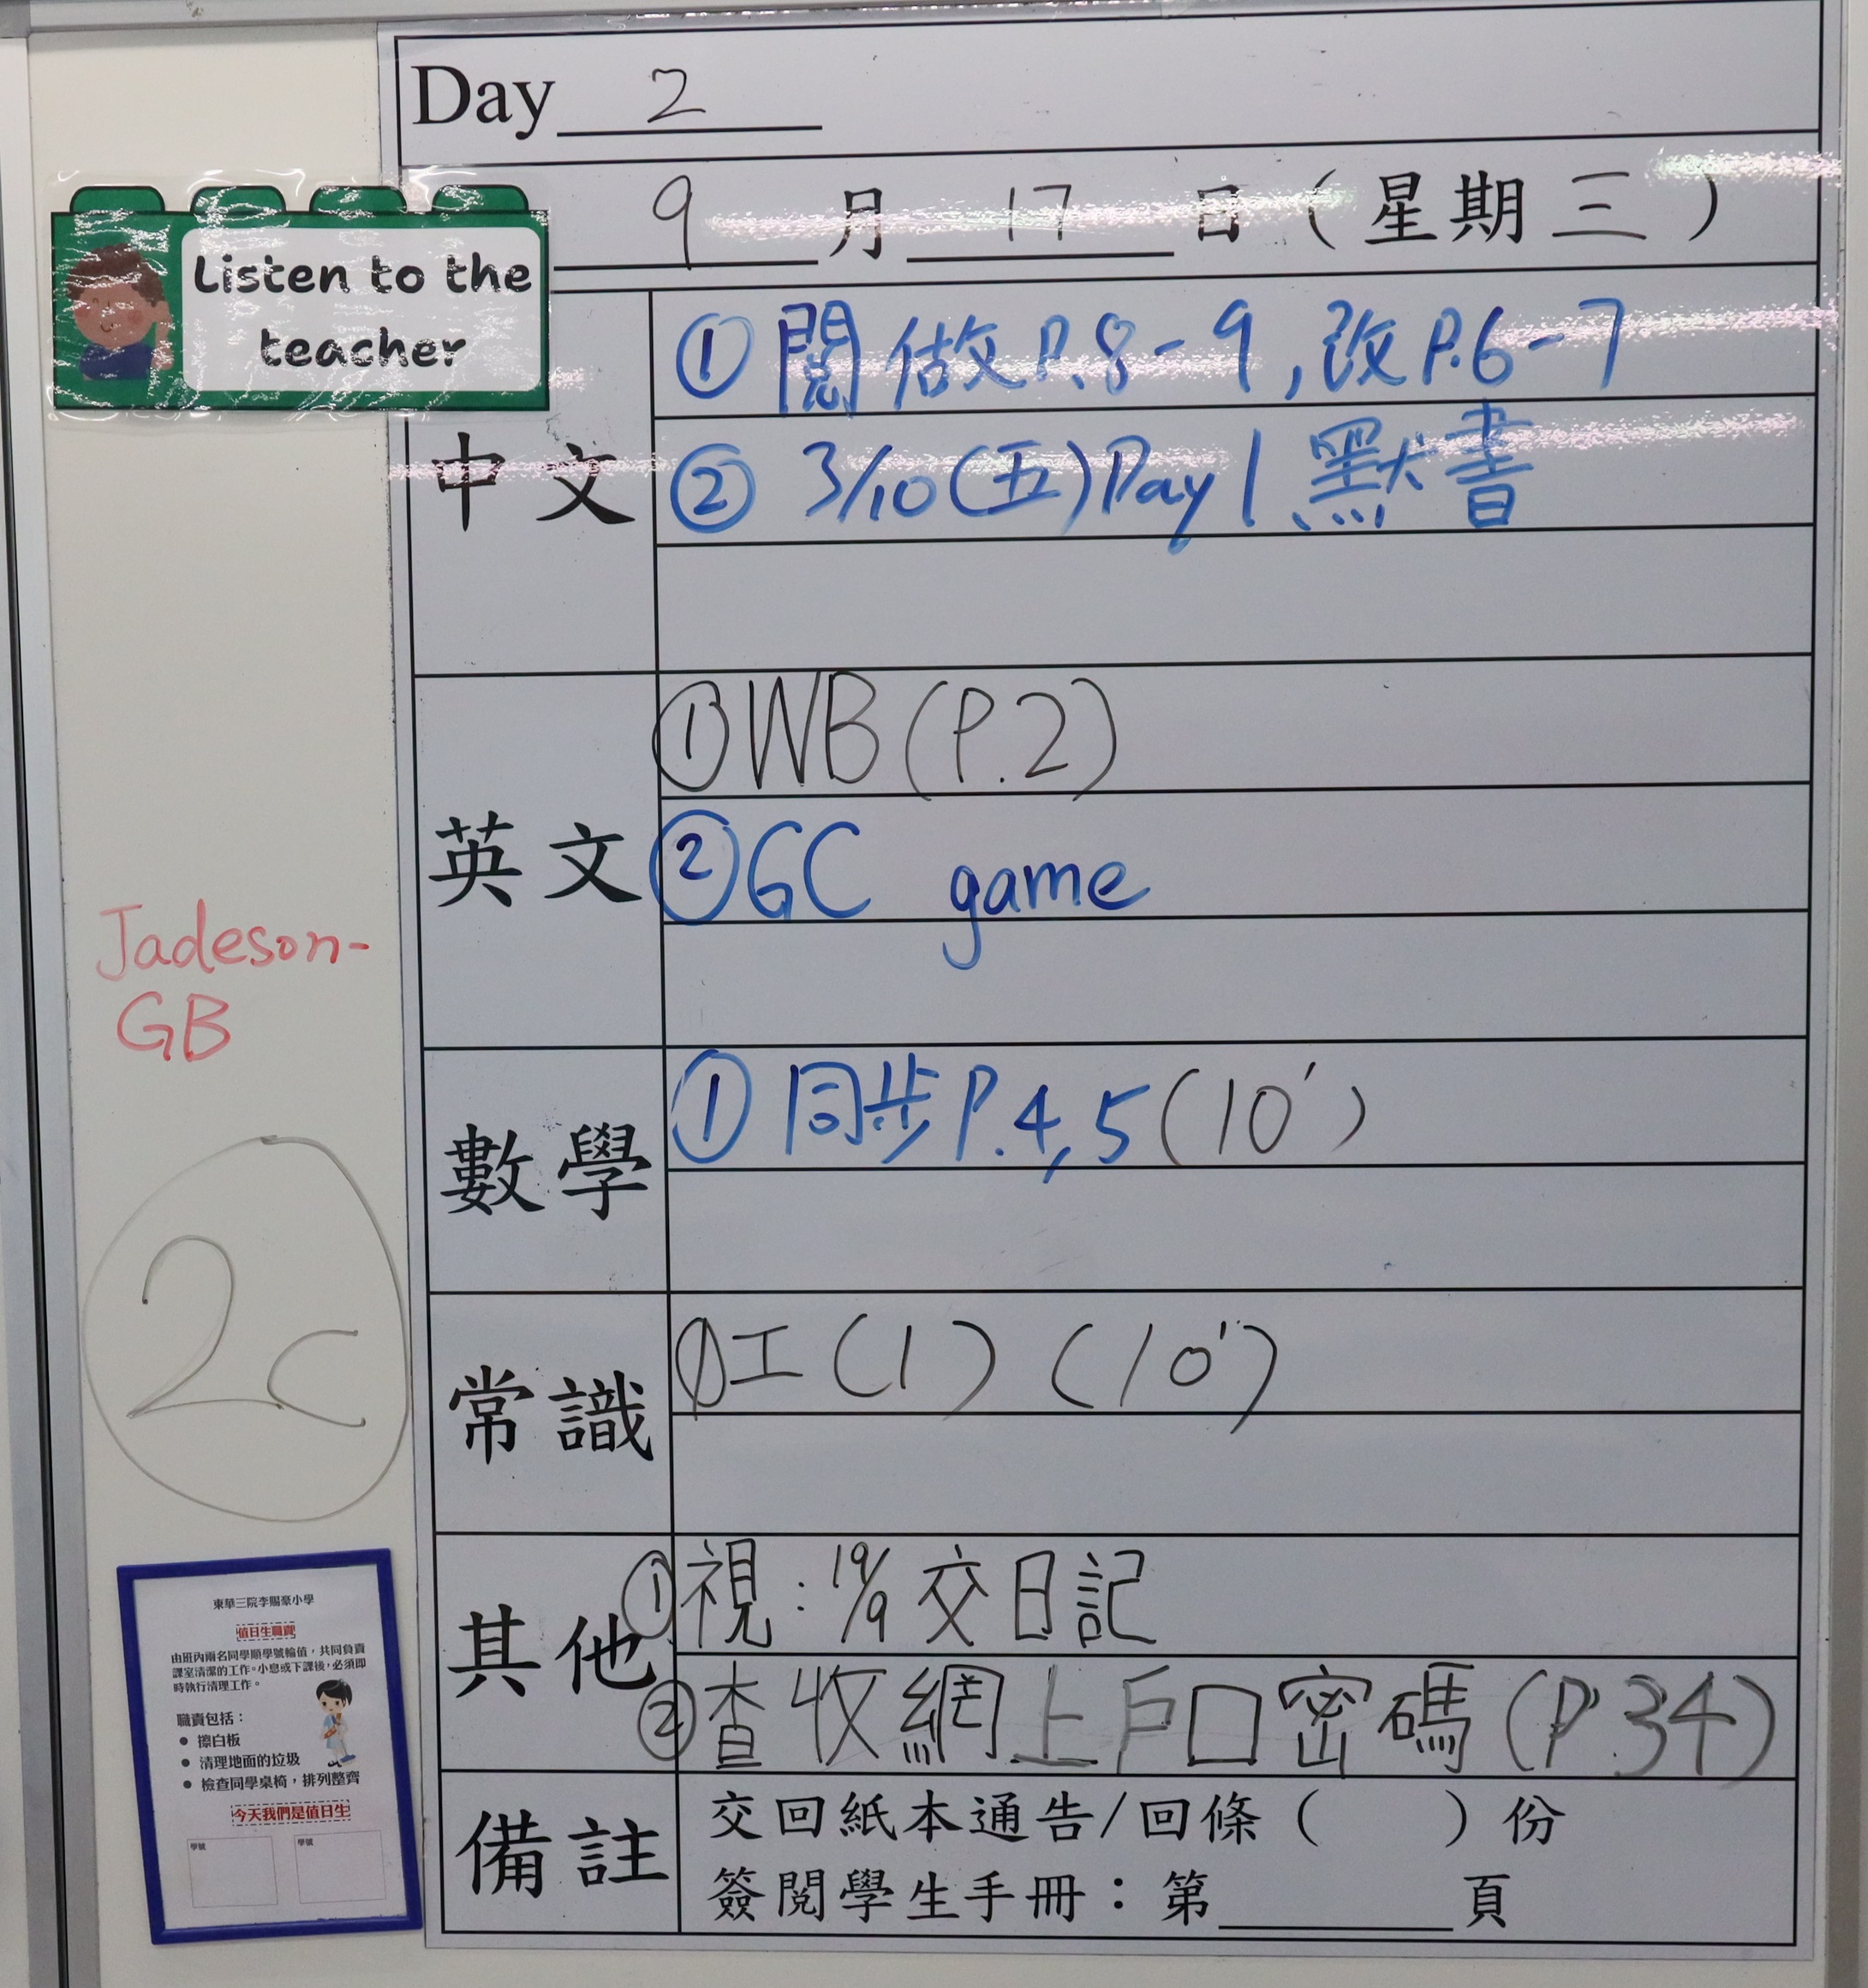 Day 2
9 月 17 日 ( 星期 三 )
Listen to the
teacher
中文
① 閱 做 P.8-9, 改 P.6-7
② 3/10 (五) Day 1 默書
英文
① WB (P.2)
② GC game
Jadeson-
GB
數學
① 同步 P.4, 5 (10')
2C
常識
① 工 (1) (10')
其他
① 視: 19/9 交日記
② 查收網上戶口密碼 (P.34)
備註
交回紙本通告/回條 ( ) 份
簽閱學生手冊:第 頁
東華三院李賜豪小學
值日生職責
由班內兩名同學順學號輪值,共同負責
課室清潔的工作。小息或下課後,必須即
時執行清理工作。
職責包括:
● 擦白板
● 清理地面的垃圾
● 檢查同學桌椅,排列整齊
今天我們是值日生
學號 學號